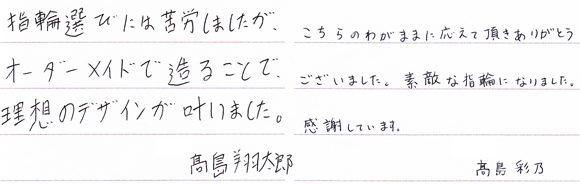 指輪選びには苦労しましたが、
オーダーメイドで造ることで、
理想のデザインが叶いました。
髙島翔太郎
こちらのわがままに応えて頂きありがとう
ございました。素敵な指輪になりました。
感謝しています。
髙島 彩乃